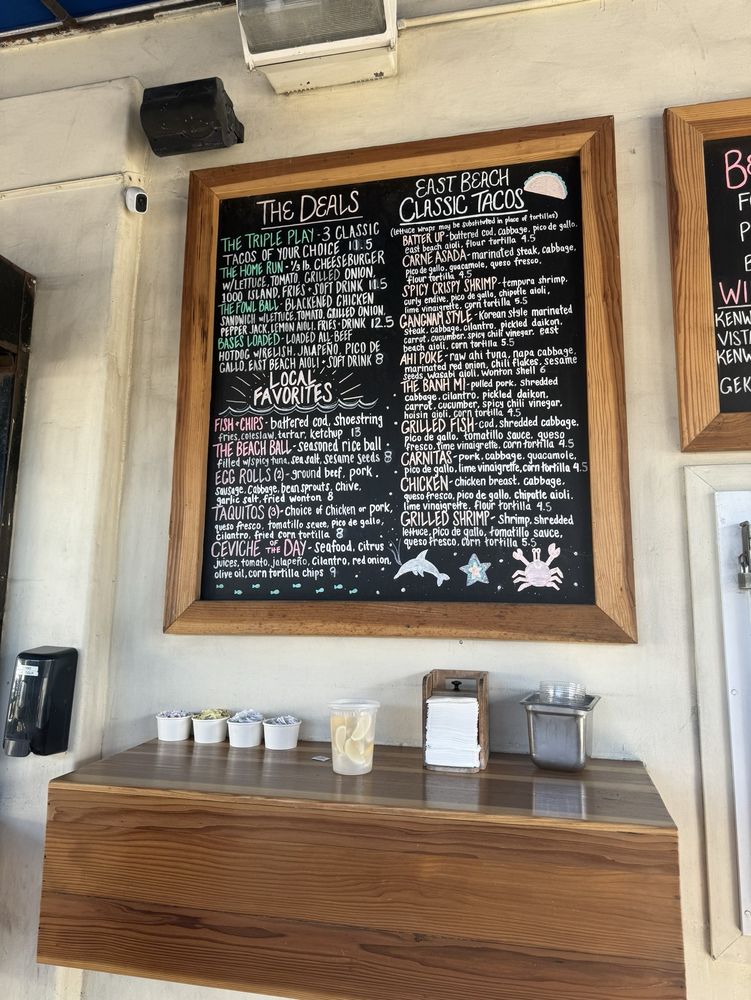 THE DEALS
THE TRIPLE PLAY - 3 CLASSIC
TACOS OF YOUR CHOICE 11.5
THE HOME RUN - 1/3 lb. CHEESEBURGER
W/LETTUCE, TOMATO, GRILLED ONION,
1000 ISLAND, FRIES + SOFT DRINK 11.5
THE FOWL BALL - BLACKENED CHICKEN
SANDWICH W/LETTUCE, TOMATO, GRILLED ONION,
PEPPER JACK, LEMON AIOLI, FRIES + DRINK 12.5
BASES LOADED - LOADED ALL-BEEF
HOTDOG W/RELISH, JALAPEÑO, PICO DE
GALLO, EAST BEACH AIOLI + SOFT DRINK 8
LOCAL
FAVORITES
FISH + CHIPS - battered cod, shoestring
fries, coleslaw, tartar, ketchup 13
THE BEACH BALL - seasoned rice ball
filled w/spicy tuna, sea salt, sesame seeds 8
EGG ROLLS (2) - ground beef, pork,
sausage, cabbage, bean sprouts, chive,
garlic salt, fried wonton 8
TAQUITOS (3) - choice of chicken or pork,
queso fresco, tomatillo sauce, pico de gallo,
cilantro, fried corn tortilla 8
CEVICHE OF THE DAY - seafood, citrus
juices, tomato, jalapeño, cilantro, red onion,
olive oil, corn tortilla chips 9
EAST BEACH
CLASSIC TACOS
(lettuce wraps may be substituted in place of tortillas)
BATTER UP - battered cod, cabbage, pico de gallo,
east beach aioli, flour tortilla 4.5
CARNE ASADA - marinated steak, cabbage,
pico de gallo, guacamole, queso fresco,
flour tortilla 4.5
SPICY CRISPY SHRIMP - tempura shrimp,
curly endive, pico de gallo, chipotle aioli,
lime vinaigrette, corn tortilla 5.5
GANGNAM STYLE - Korean style marinated
steak, cabbage, cilantro, pickled daikon,
carrot, cucumber, spicy chili vinegar, east
beach aioli, corn tortilla 5.5
AHI POKE - raw ahi tuna, napa cabbage,
marinated red onion, chili flakes, sesame
seeds, wasabi aioli, wonton shell 6
THE BANH MI - pulled pork, shredded
cabbage, cilantro, pickled daikon,
carrot, cucumber, spicy chili vinegar,
hoisin aioli, corn tortilla 4.5
GRILLED FISH - cod, shredded cabbage,
pico de gallo, tomatillo sauce, queso
fresco, lime vinaigrette, corn tortilla 4.5
CARNITAS - pork, cabbage, guacamole,
pico de gallo, lime vinaigrette, corn tortilla 4.5
CHICKEN - chicken breast, cabbage,
queso fresco, pico de gallo, chipotle aioli,
lime vinaigrette, flour tortilla 4.5
GRILLED SHRIMP - shrimp, shredded
lettuce, pico de gallo, tomatillo sauce,
queso fresco, corn tortilla 5.5
WI
KENW
VISTA
KENW
GEK